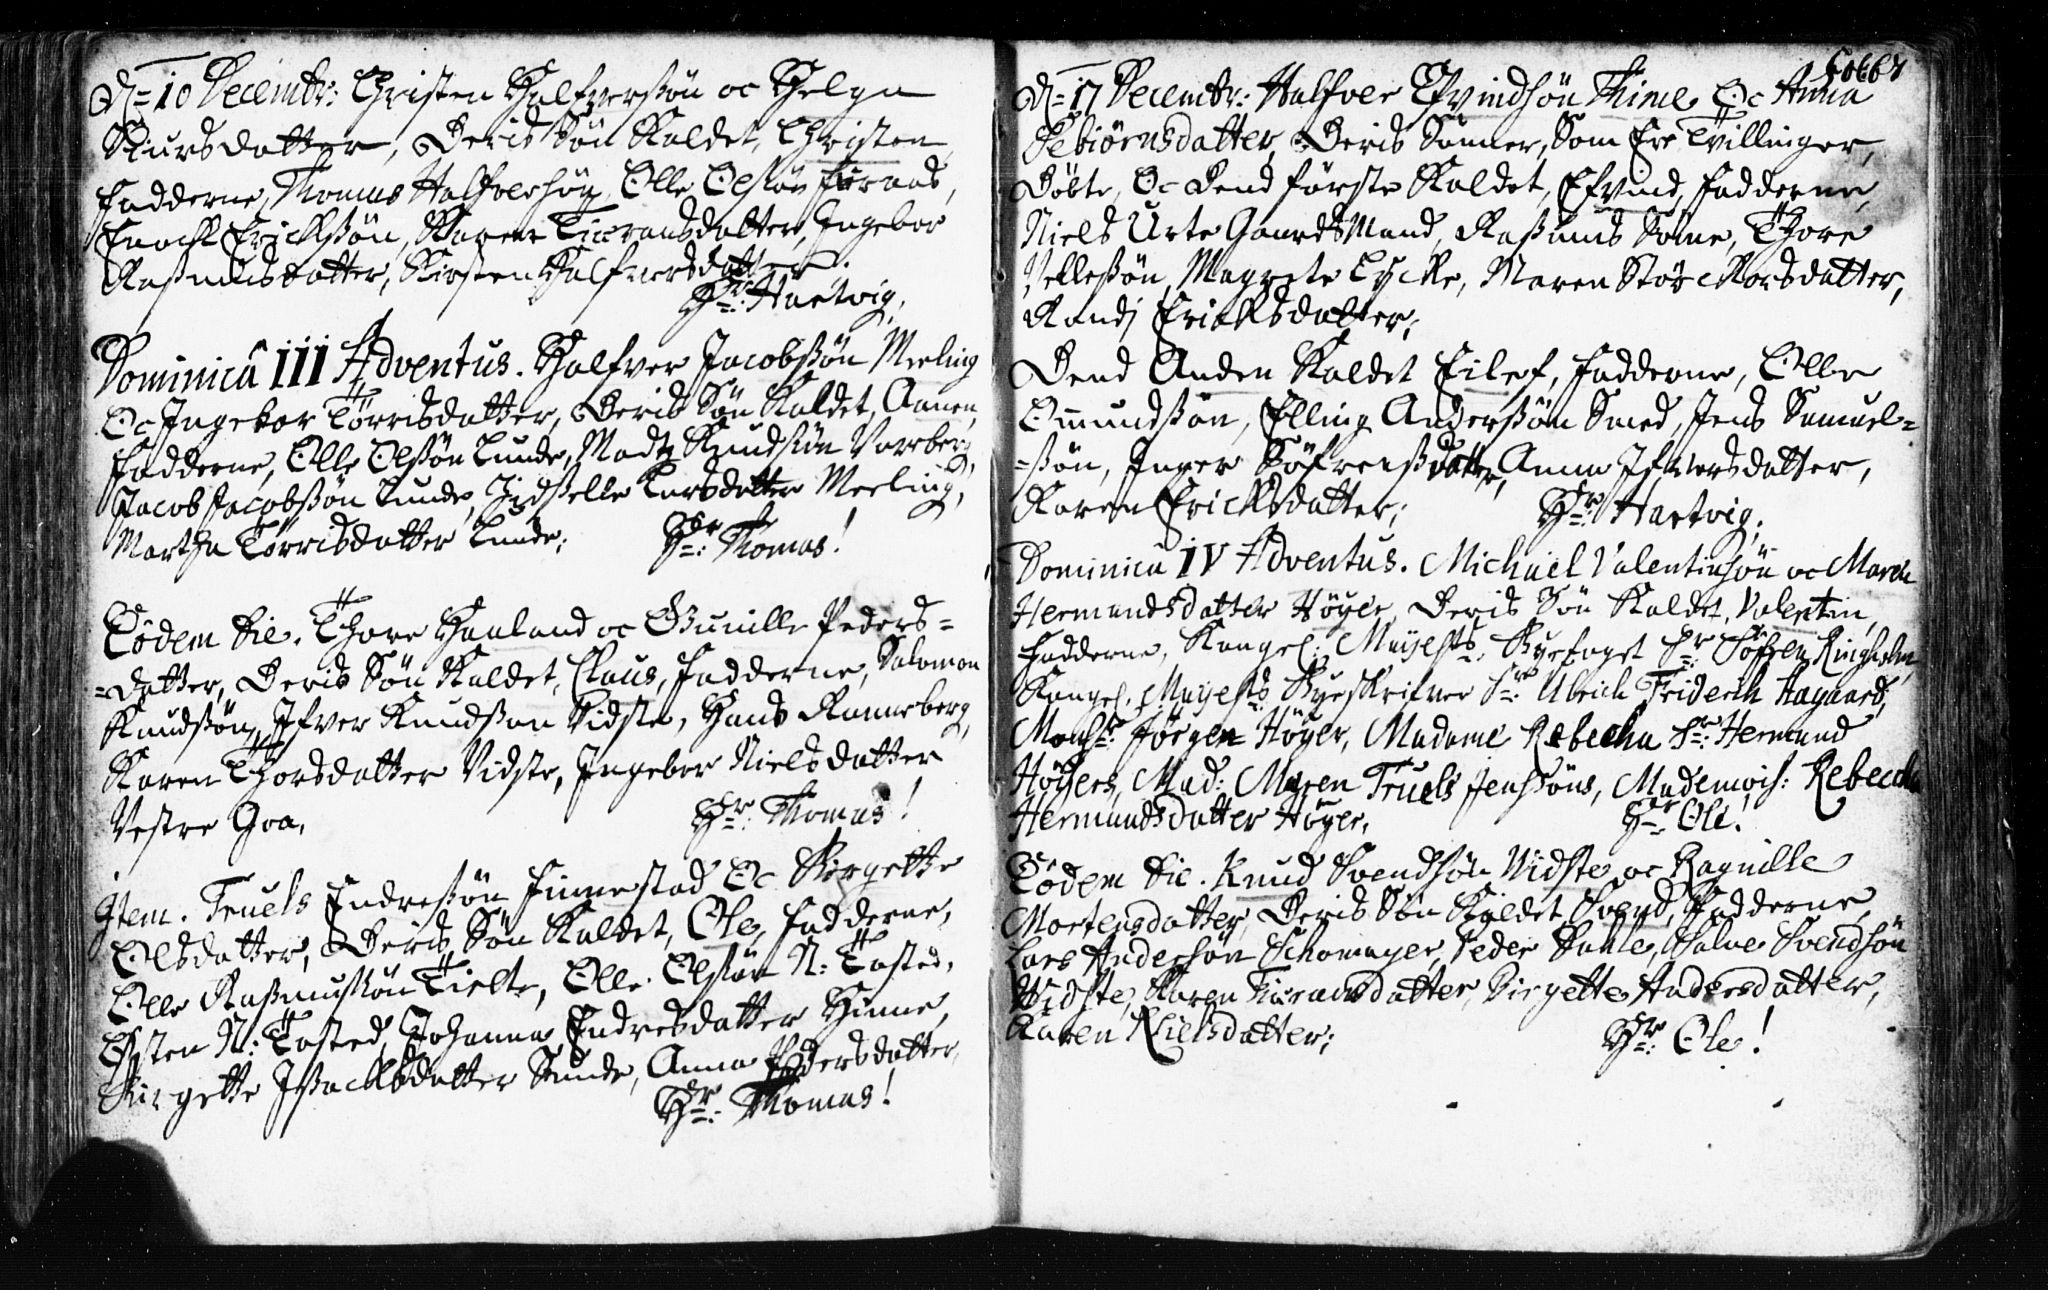 D: 10 Decembr: Christen Halfversøn oc Helga
Siursdatter, Deris Søn Kaldet, Christen,
Fadderne, Thomas Halfversøn, Olle Olsøn
Enoch Erichssøn, Karen datter, Ingebor
Rasmusdatter, Kirsten Halfversdatter.
Hr: Hartvig,
Dominica III Adventus. Halfver Jacobssøn Meeling
Oc Ingebor Tørrisdatter, Deris Søn Kaldet, Aanen,
Fadderne, Olle Olssøn Lunde, Madtz Knudssøn Vareberg,
Jacob Jacobssøn Lunde, Zidsselle Larsdatter Meeling,
Martha Tørrisdatter Lunde; Hr: Thomas!
Eodem Die. Thore Haaland oc Gunille Peders=
=datter, Deris Søn Kaldet, Claus, Fadderne, Salomon
Knudssøn, Ifver Knudssøn Vidste, Hans Renneberg,
Karen Thorsdatter Vidste, Ingebor Nielsdatter
Vestre Goa, Hr: Thomas!
Item. Truels Endressøn Finnestad Oc Birgette
Olsdatter, Deris Søn Kaldet, Ole, Fadderne,
Olle Rasmussøn Tielte, Olle Olssøn N: Tasted,
Østen N: Tasted, Johanna Endresdatter Hinne,
Birgette Isachsdatter Sunde, Anna Pedersdatter,
Hr: Thomas!
D: 17 Decembr: Halfver Efvindsøn Thime Oc Anna
datter, Deris Sønner, Som Ere Tvillinger,
Døbte, Oc Dend første Kaldet, Efvind, Fadderne,
Niels Urte Gaards Mand, Rasmus Sømme, Thore
Pellessøn, Magrete Lycke, Maren datter,
Randj Erichsdatter;
Dend Anden Kaldet Eilef, Fadderne, Olle
Omundssøn, Elling Anderssøn Smed, Jens Samuel=
=søn, Inger Søfrensdatter, Anna Ifversdatter,
Karen Erichsdatter; Hr: Hartvig.
Dominica IV Adventus. Michael Valentinsøn oc Maren
Hermandsdatter Høyer, Deris Søn Kaldet, Valentin,
Fadderne, Kongel: Mayestts: Byefoget Sr: Søfren Ringholm,
Kongel. Mayestts Byeskrifver Sr: Ulrich Friderich Aagaard,
Monsr: Jørgen Høyer, Madame Rebecha Sr: Hermand
Høyers, Mad: Maren Truels Jenssøns, Mademois: Rebecha
Hermandsdatter Høyer, Hr: Ole.
Eodem Die. Knud Svendsøn Vidste oc Ragnille
Mortensdatter, Deris Søn Kaldet Svend, Fadderne,
Lars Andersøn Schomager, Peder Dahle, Salve Svendsøn
Vidste, Karen datter, Birgette Andersdatter,
Karen Nielsdatter; Hr: Ole!